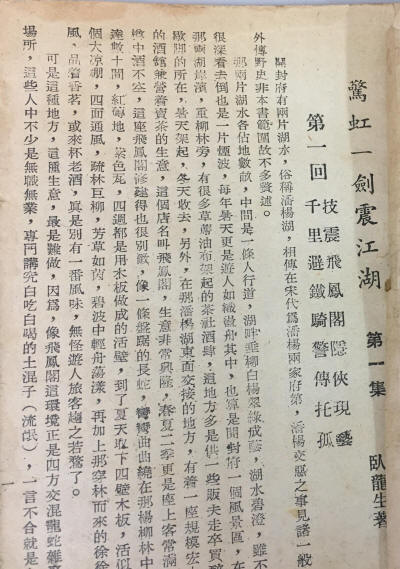 驚虹　劍震江湖　第一集　臥龍生著
第一回
技震飛鳳閣隱俠現蹤
千里避鐵騎警傳托孤
開封府有兩片湖水，俗稱潘楊湖，相傳在宋代為潘楊兩家府第，潘楊交惡之事見諸一般
外傳野史非本書範圍故不多贅述。
那兩片湖水各佔地數畝，中間是一條人行道，湖畔垂柳白楊翠綠成蔭，湖水碧澄，雖不
很深看去倒也是一片煙波，每年暑天更是遊人如織盪舟其中，也算是開封府一個風景區，在
那兩湖岸濱，垂柳林旁，有很多草蓆油布架起的茶社酒肆，這地方多是供一些販夫走卒買醉
歇脚的所在，暑天架起，冬天收去，另外，在那潘楊湖東面交接的地方，有着一座規模宏
的酒館兼營着賣茶的生意，這個店名叫飛鳳閣，生意非常興隆，春夏二季更是座上客常滿
樽中酒不空，這座飛鳳閣修建得也很別緻，像一條盤踞的長蛇，彎彎曲曲繞在那楊柳林中
達數十間，紅磚地，紫色瓦，四週都是用木板做成的活壁，到了夏天取下四壁木板，活似
個大涼棚，四面通風，疏林巨柳，芳草如茵，碧波中輕舟蕩漾，再加上那穿林而來的徐徐
風，品着香茗，或來杯老酒，眞是別有一番風味，無怪遊人旅客趨之若鶩了。
可是這種地方，這種生意，最是難做，因爲，像飛鳳閣這環境正是四方交混龍蛇雜
場所，這些人中不少是無職無業，專門講究白吃白喝的土混子（流氓），一言不合就是